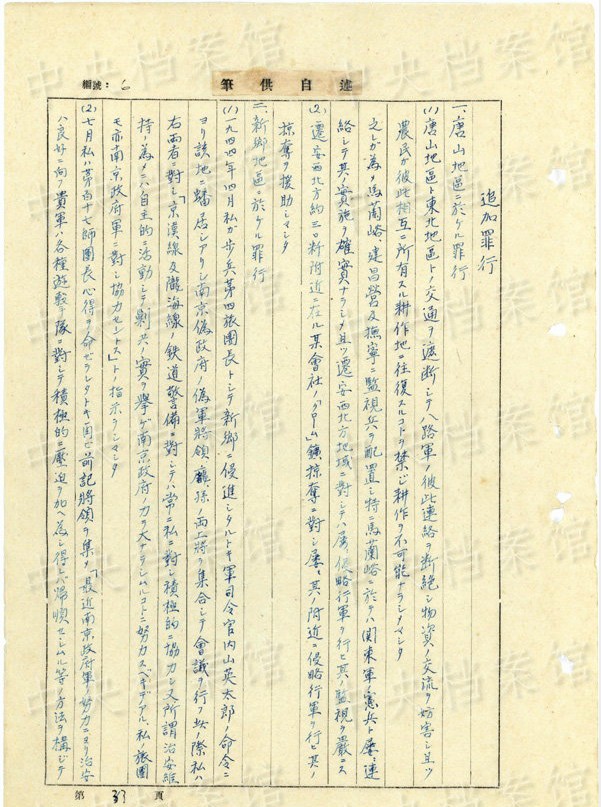 編號：6
述自供筆
追加罪行
一、唐山地區ニ於ケル罪行
(1) 唐山地區ト東北地區トノ交通ヲ遮断シテ八路軍ノ彼此連絡ヲ断絶シ物資ノ交流ヲ妨害シ且ツ
農民ガ彼此相互ニ所有スル耕作地ニ往復スルコトヲ禁ジ耕作ヲ不可能ナラシメマシタ
之レガ為メ馬蘭峪、建昌營及撫寧ニ監視兵ヲ配置シ特ニ馬蘭峪ニ於テハ関東軍ノ憲兵ト屡々連
絡シテ其ノ實施ヲ確實ナラシメ且ツ遷安西北方地域ニ對シテハ屡々侵略行軍ヲ行ヒ其ノ監視ヲ嚴ニス
(2) 遷安西北方約三〇粁附近ニ在ル某會社ノ「クローム」鑛掠奪ニ對シ屡々其ノ附近ニ侵略行軍ヲ行ヒ其ノ
掠奪ヲ援助シマシタ
二、新郷地區ニ於ケル罪行
(1) 一九四四年四月私ガ歩兵第四旅團長トシテ新郷ニ侵進シタルトキ軍司令官内山英太郎ノ命令ニ
ヨリ該地ニ蟠居シアリシ南京偽政府ノ偽軍將領龐、孫ノ両上將ヲ集合シテ會議ヲ行フ此ノ際私ハ
右両者ニ對シ「京漢線及隴海線ノ鉄道警備ニ對シテハ常ニ私ニ對シ積極的ニ協力シ又所謂治安維
持ノ為メニハ自主的ニ活動シテ剿共ノ實ヲ擧ゲ南京政府ノ力ヲ大ナラシムルコトニ努力スベキデアル、私ノ旅團
モ亦南京政府軍ニ對シ協力セントス」トノ指示ヲシマシタ
(2) 七月私ハ第百十七師團長心得ヲ命ゼラレタトキ再ビ前記將領ヲ集メ「最近南京政府軍ノ努力ニヨリ治安
ハ良好ニ向フ貴軍ハ各種遊撃隊ニ對シテ積極的ニ壓迫ヲ加ヘ為シ得レバ帰順セシムル等ノ方法ヲ構ジテ
第 37 頁
中央档案馆